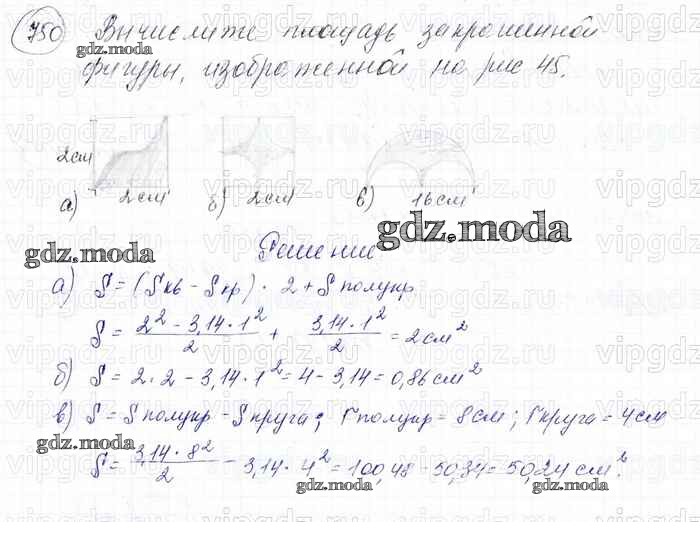 750 Вычислите площадь закрашенной
gdz.moda
фигуры, изображенной на рис 45.
gdz.moda
vipgdz.ru
2см
а) 2см б) 2см в) 16см
gdz.moda
gdz.moda
Решение
а) S = (Sкв - Sкр) · 2 + Sполукр
S = 2² - 3,14·1² / 2 + 3,14·1² / 2 = 2 см²
б) S = 2·2 - 3,14·1² = 4 - 3,14 = 0,86 см²
в) S = Sполукр - Sкруга; rполукр = 8см; rкруга = 4см
gdz.moda
S = 3,14·8² / 2 - 3,14·4² = 100,48 - 50,24 = 50,24 см².
gdz.moda
gdz.moda